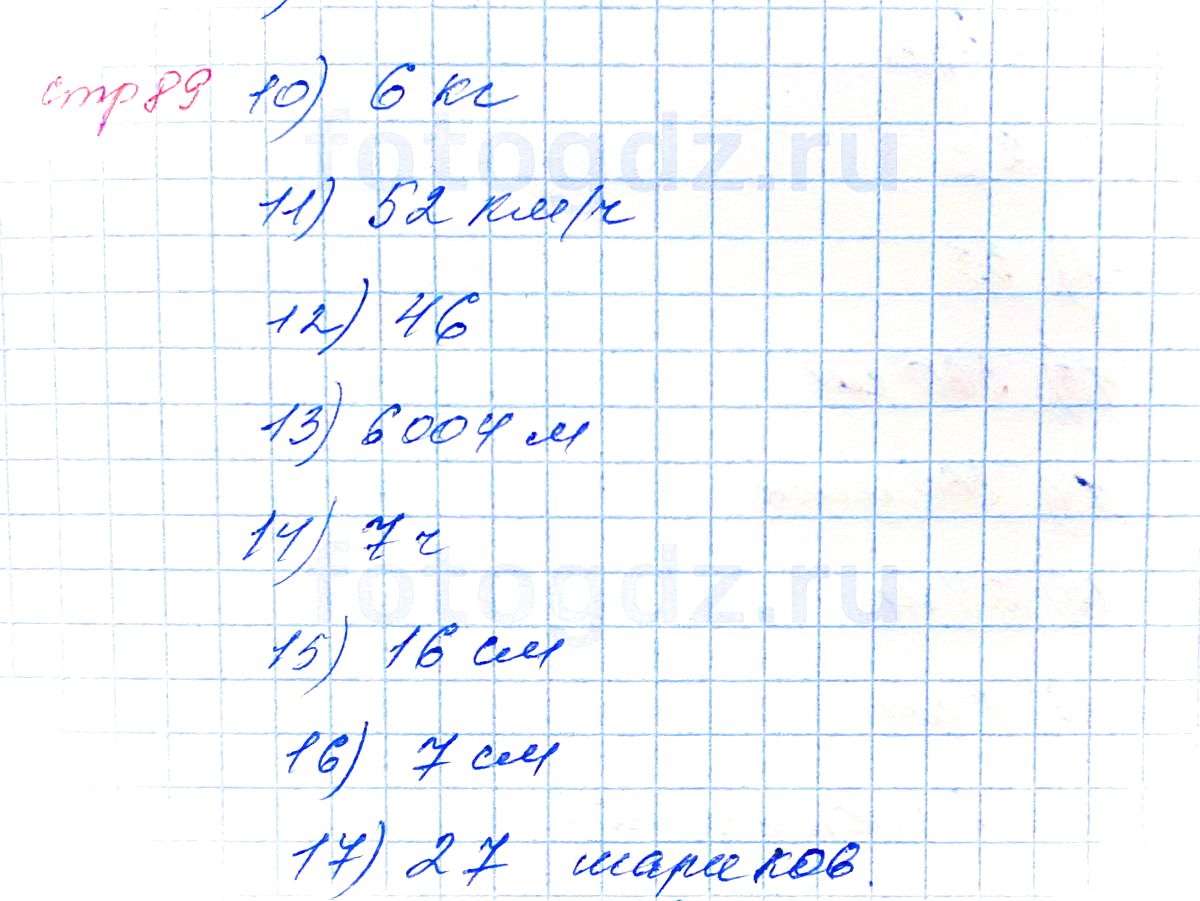 стр 89 10) 6 кг
fotogdz.ru
11) 52 км/ч
12) 46
13) 6004 м
14) 7 ч
fotogdz.ru
15) 16 см
16) 7 см
17) 27 шариков.